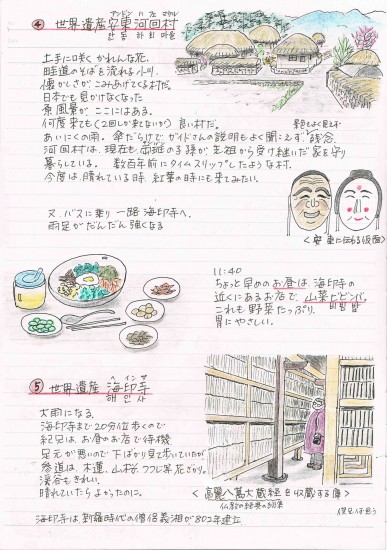 ④ 世界遺産 安東 河回村
アンドン ハ フェ マウル
안동 하회 마을
土手に咲く かれんな花、
畦道のそばを 流れる小川、
懐かしさが こみあげてくる村だ。
日本でも 見かけなくなった
原風景が ここにはある。
何度来ても(2回しか来ていないが) 良い村だ。
あいにくの雨。 傘だらけで ガイドさんの説明もよく聞こえず 残念。
景色もよく見えず
河回村は、現在も 両班の子孫が 先祖から受け継いだ 家を守り
暮らしている。 数百年前にタイムスリップしたような村。
今度は、晴れている時、紅葉の時にも来てみたい。
又、バスに乗り 一路 海印寺へ。
雨足がだんだん強くなる
<安東に伝わる仮面>
11:40
ちょっと早めのお昼は、海印寺の
近くにあるお店で、山菜ビビンバ。
これも 野菜たっぷり。 비빔밥
胃にやさしい。
⑤ 世界遺産 海印寺
ヘ イン サ
해 인 사
大雨になる。
海印寺まで20分位歩くので
紀兄は、お昼のお店で待機
足元が悪いので 下ばかり見て歩いていたが
参道は、木蓮、山桜、ツツジ早花ざかり。
渓谷もきれい。
晴れていたら よかったのに。
<高麗八萬大蔵経を収蔵する庫>
仏教の経典の印集
海印寺は、新羅時代の僧侶義湘が802年建立